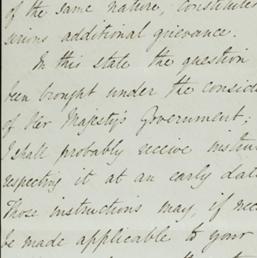 of the same nature, constitutes
serious additional grievance.
In this state the question
been brought under the consid
of Her Majesty's Government;
I shall probably receive instru
respecting it at an early dat
Those instructions may, if nec
be made applicable to your